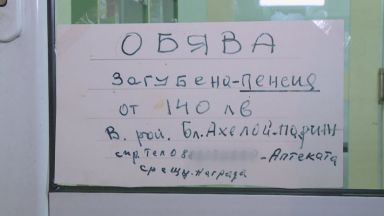 ОБЯВА
Загубена-Пенсия
от 140 лв
В. рай. Бл. Ахелой-Марин
тел 08 -Аптеката
срещу. награда